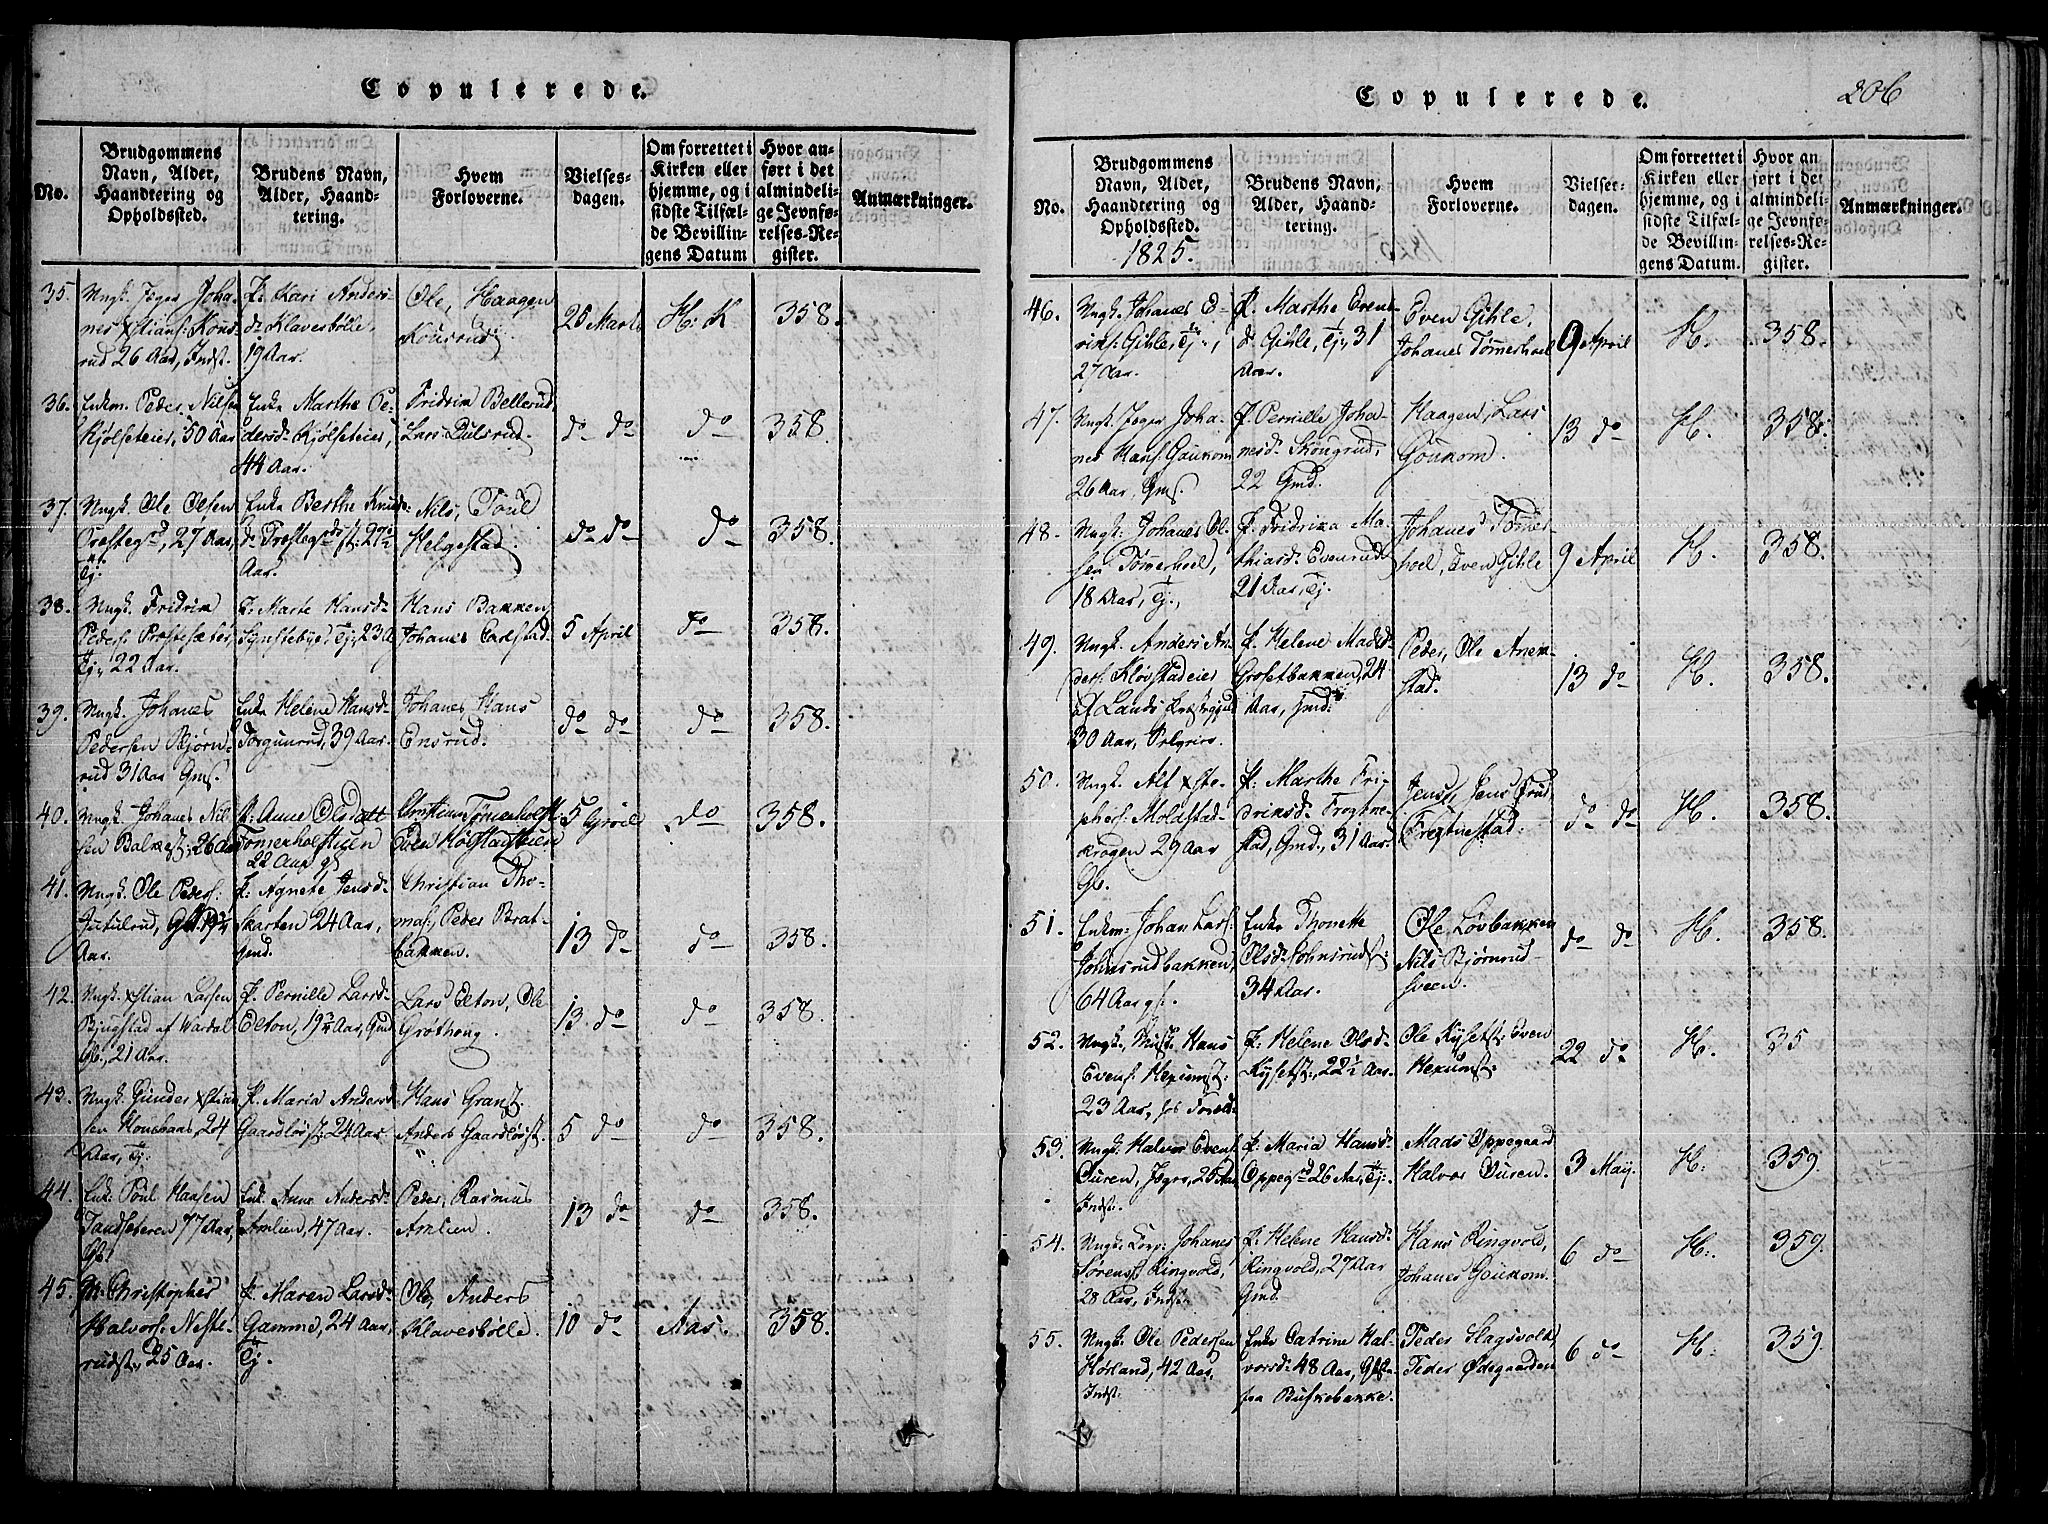 Copulerede.
No.
Brudgommens
Navn, Alder,
Haandtering og
Opholdssted.
Brudens Navn,
Alder, Haand-
tering.
Hvem
Forloverne.
Vielses-
dagen.
Om forrettet i
Kirken eller
hjemme, og i
sidste Tilfæl-
de Bevillin-
gens Datum
Hvor an-
ført i det
almindeli-
ge Jevnfø-
relses-Re-
gister.
Anmærkninger.
35. Ungk. Jæger Joha-
nes Xstians: Kous-
rud 26 Aar, Indst.
P. Kari Anders-
d: Klavesbølle,
19 Aar.
Ole, Haagen
Kousrud.
25 Marts
H: K
358.
36. Enkm. Peder Nilsen
Kjølseteier, 50 Aar
Enke Marthe Pe-
dersd: Kjølseteier,
44 Aar.
Fridrik Bellerud
Lars Dulsrud.
do do
do
358.
37. Ungk. Ole Olsen
Præstegrd, 27 Aar,
Tj.
Enke Berthe Knuds-
d: Præstegrdst: 27½
Aar.
Nils, Poul
Helgestad.
do do
do
358.
38. Ungk. Fridrik
Peders: Præstesæter,
Tj, 22 Aar.
P. Marte Hansd:
Synstebye, Tj, 23 A
Hans Bakken
Johanes Carlstad.
5 April
do
358.
39. Ungk. Johanes
Pedersen Bjørn-
rud 31 Aar Gms.
Enke Helene Hansd:
Torgunrud, 39 Aar.
Johanes, Hans
Ensrud.
do do
do
358.
40. Ungk. Johanes Nil-
sen Balkest:, 26 Aar
P. Anne Olsdatt
Tømerholstuen
22 Aar gs
Christian Tømerholst:
Even Hølstadstuen
5 April
do
358.
41. Ungk. Ole Peders:
Jutulrud, Gb 19¾
Aar.
P. Agnete Jensd:
Skarten 24 Aar,
Gmd.
Christian Tho-
mas:, Peder Brat-
bakken.
13 do
do
358.
42. Ungk. Xstian Larsen
Bjugstad af Wardal
Gb., 21 Aar.
P. Pernille Larsd:
Elton, 19¾ Aar, Gmd
Lars Elton, Ole
Grøthong.
13. do
do
358.
43. Ungk. Gunder Xstian-
sen Koushaas, 24
Aar, Tj.
P. Maria Andersd
Gaardløst: 24 Aar
Hans Granst.
Anders Gaardløst.
5 do
do
358.
44. Enk. Poul Hansen
Tandseteren 77 Aar,
Gb.
Enk. Anne Andersd:
Amlien, 47 Aar.
Peder, Rasmus
Amlien.
13 do
do
358.
45. U. Christopher
Halvors: Neste-
rudst:, 25 Aar.
P. Maren Larsd:
Gamme, 24 Aar,
Tj.
Ole, Anders
Klavesbølle.
10 do
Aas.
358.
Copulerede.
206
No.
Brudgommens
Navn, Alder,
Haandtering og
Opholdssted.
1825.
Brudens Navn,
Alder, Haand-
tering.
Hvem
Forloverne.
Vielses-
dagen.
Om forrettet i
Kirken eller
hjemme, og i
sidste Tilfæl-
de Bevillin-
gens Datum.
Hvor an
ført i det
almindeli-
ge Jevnfø-
relses-Re-
gister.
Anmærkninger.
46. Ungk. Johanes E-
riks: Gihle, Tj.,
27 Aar.
P. Marthe Evens
d: Gihle, Tj, 31
Aar.
Even Gihle,
Johanes Tømerhoel
9 April
H.
358.
47. Ungk. Jæger Joha-
nes Hans: Goukom
26 Aar, Gms.
P. Pernille Joha-
nesd: Skougrud,
22 Gmd.
Haagen, Lars
Goukom.
13 do
H.
358.
48. Ungk: Johanes Ol-
sen Tømerhoel,
18 Aar, Tj.,
P. Fridrika Ma-
thiasd: Evenrud
21 Aar, Tj.
Johanes Tømer-
hoel, Even Gihle
9 April
H.
358.
49. Ungk. Anders An-
ders: Kløvstadeier
af Lands Præstegjeld
30 Aar,
P. Helene Madsd:
Grosetbakken, 24
Aar, Gmd.
Peder, Ole Anek-
stad.
13 do
H.
358.
50. Ungk. Alf Xsto-
phers: Moldstad-
krogen 29 Aar
Gb.
P. Marthe Fri-
driksd: Frogtne-
stad, Gmd., 31 Aar.
Jens,
Fregtnestad.
do do
H.
358.
51. Enkm: Johan Lars:
Johnsrudbakken,
64 Aar gs.
Enke Thonette
Olsd: Johnsrudst:
34 Aar.
Ole Løvbakken
Nils Bjørnrud-
sveen.
do do
H.
358.
52. Ungk., Hans
Evens: Hexumst:
23 Aar,
P. Helene Olsd:
Kysetst:, 22½ Aar.
Ole Kysetst: Even
Hexumst:
22 do
H.
35
53. Ungk. Halvor Evens:
Duren, Jægr, 25 Aar
Indst:
P. Maria Hansd:
Oppegrd 26 Aar, Tj:
Mads Oppegaard
Halvor Duren.
3 May.
H:
359.
54. Ungk. Corp: Johanes
Sørens: Ringvold,
28 Aar, Indst:
P. Helene Hansd:
Ringvold, 27 Aar
Gmd.
Hans Ringvold,
Johanes Goukom.
6 do
H:
359.
55. Ungk. Ole Pedersen
Høkland, 42 Aar,
Indst:
Enke Catrine Hal-
vorsd: 48 Aar,
fra Buskebakke.
Peder Slagsvold,
Peder Ødegaarden
6 do
H:
359.